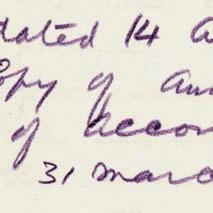 dated 14 A
Copy of an
of accou
31 marc